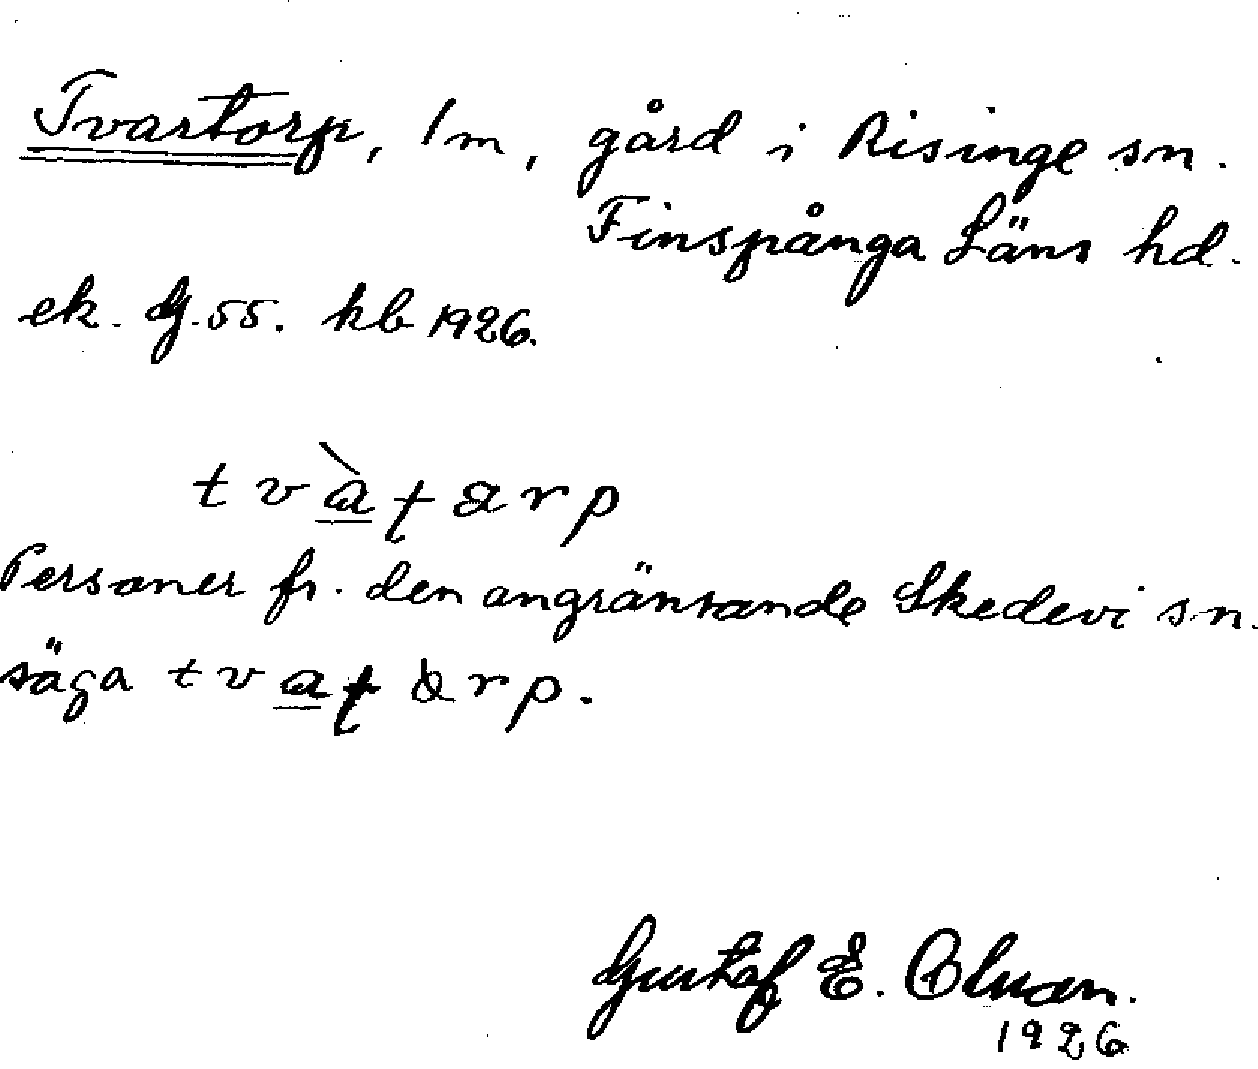 Tvartorp, 1 m, gård i Risinge sn.
Finspånga Läns hd.
ek. G. 55. kb 1926.
t v à ʈ a r p
Personer fr. den angränsande Skedevi sn.
säga t v a ʈ a r p.
Gustaf E. Olman.
1926